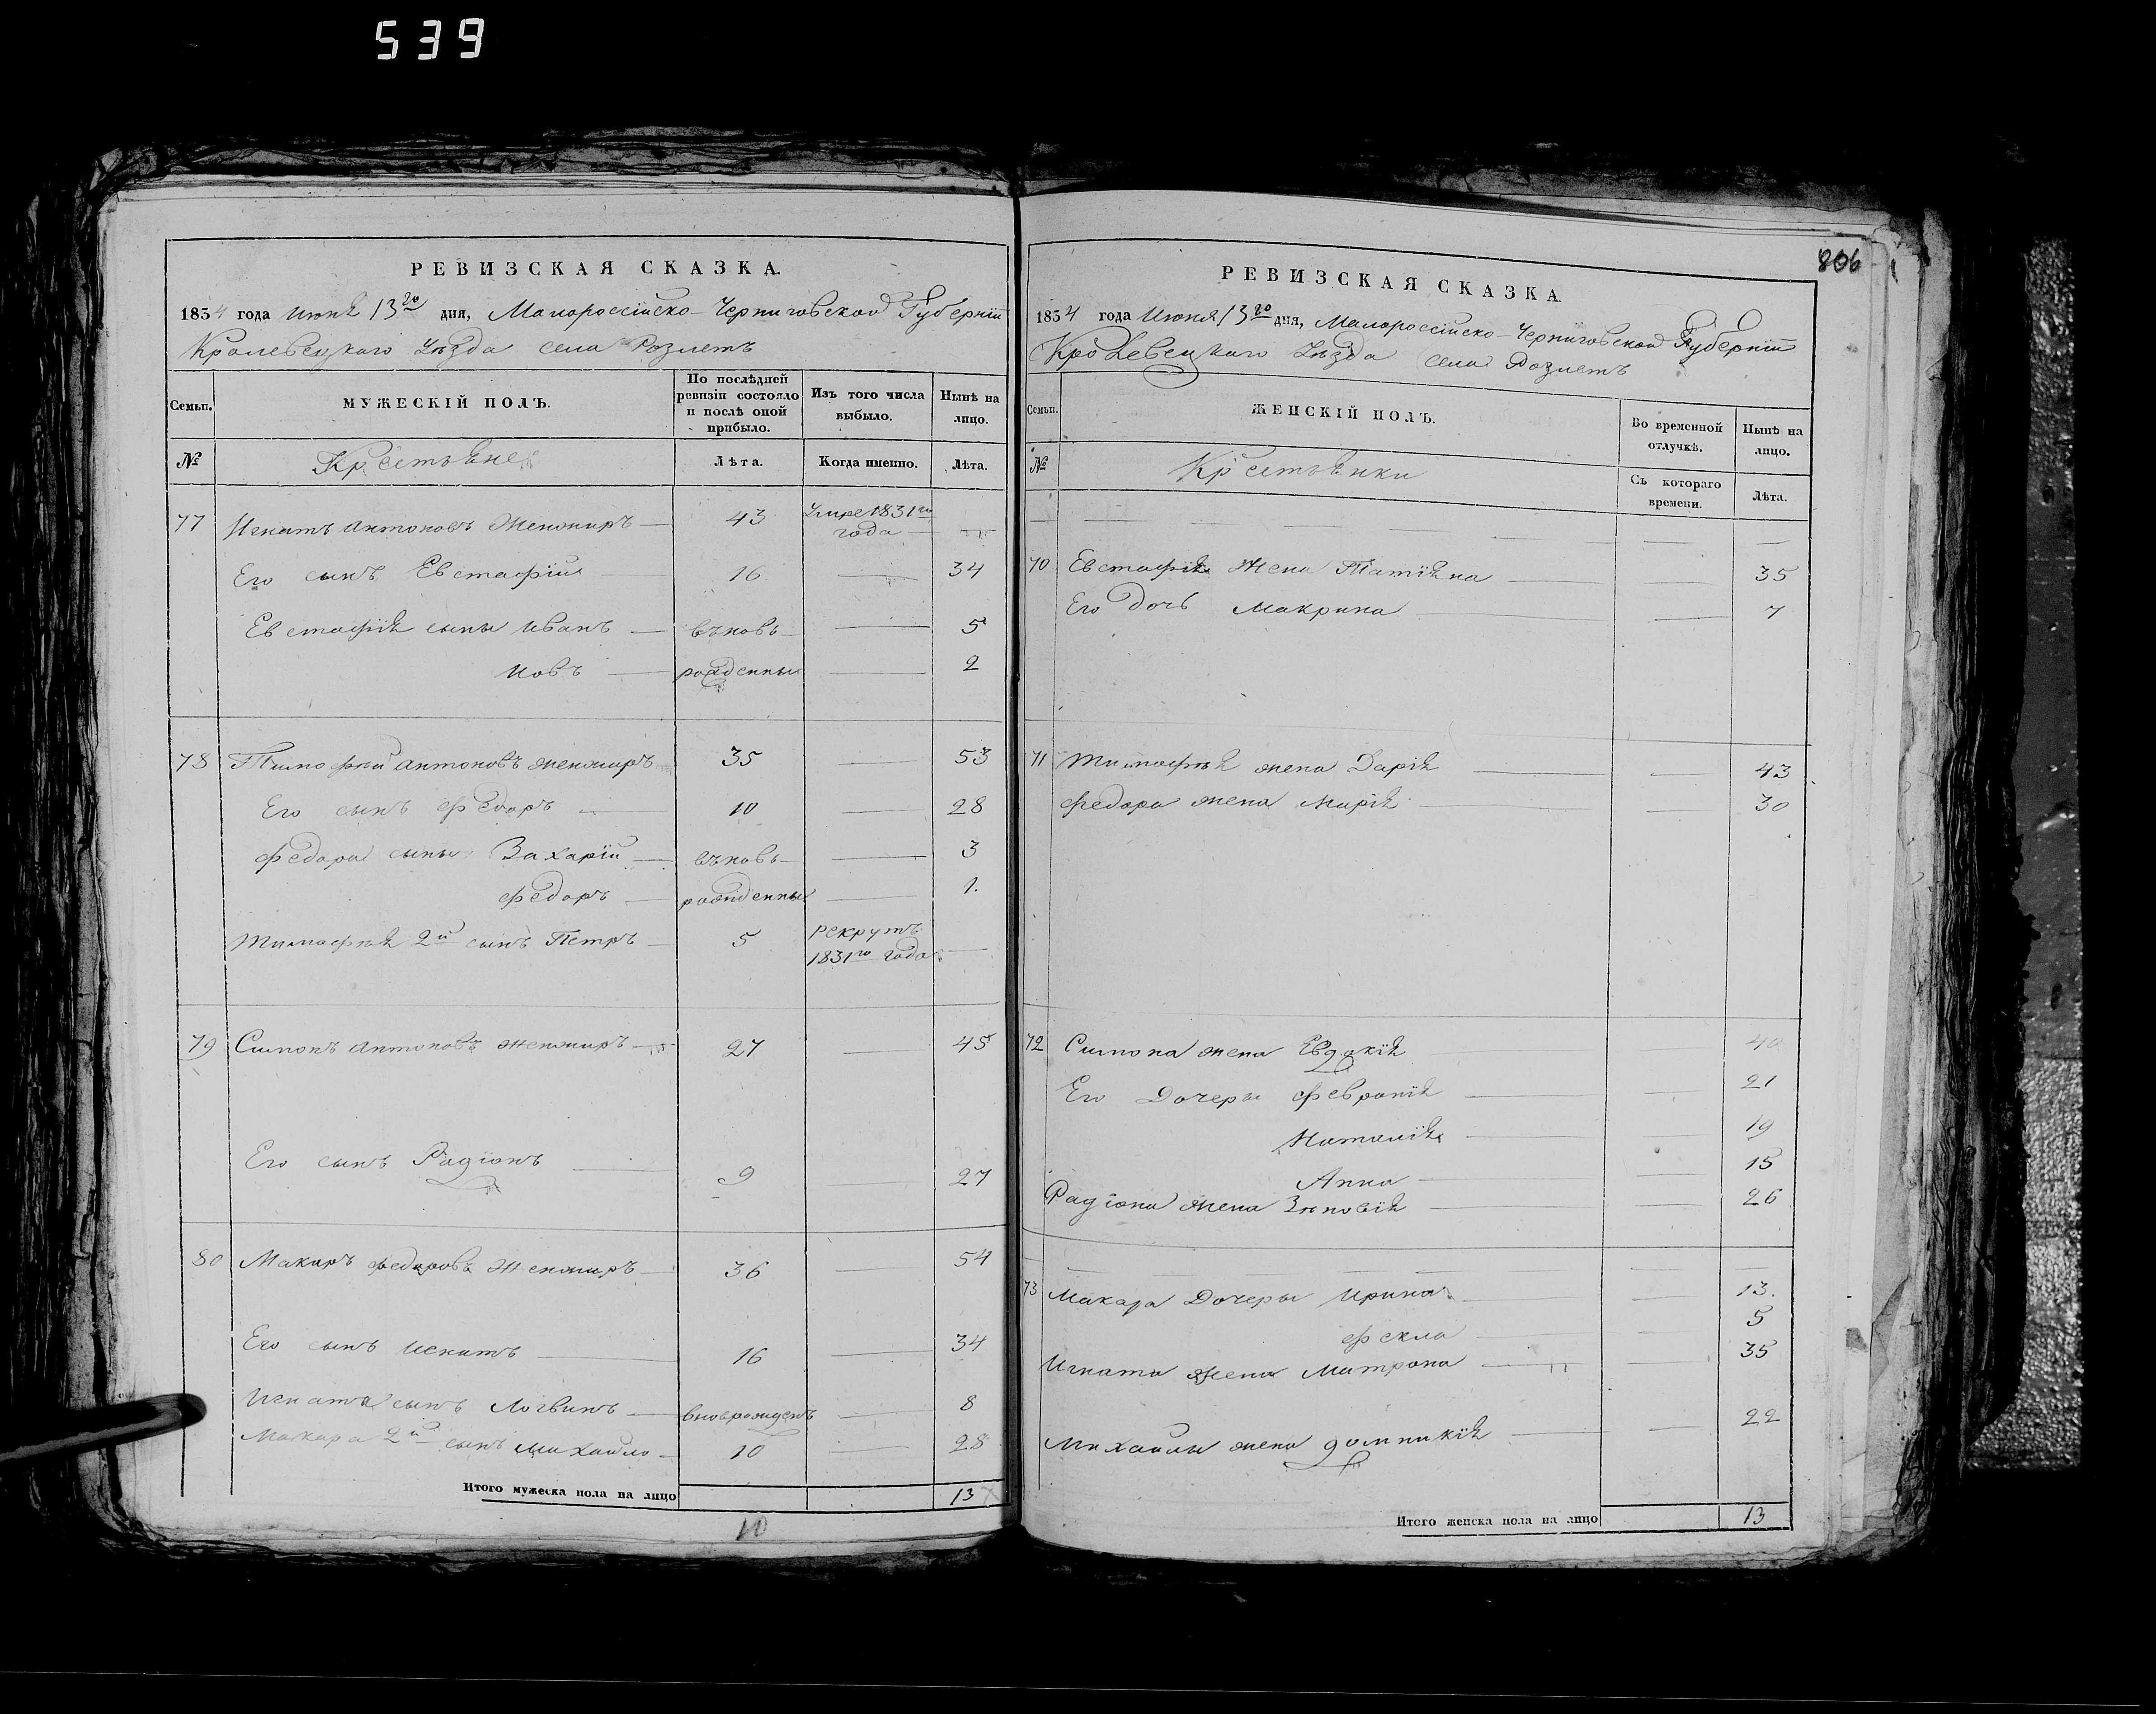 539
РЕВИЗСКАЯ СКАЗКА.
1834 года Июня 13го дня, Малороссійско-Черниговской Губерніи
Кролевецкаго Уѣзда села Розлетъ
Семьи.
МУЖЕСКІЙ ПОЛЪ.
По послѣдней ревизіи состояло и послѣ оной прибыло.
Изъ того числа выбыло.
Нынѣ на лицо.
№
Крестьяне
Лѣта.
Когда именно.
Лѣта.
77 Игнатъ Антоновъ 43 Умре 1831го года
Его сынъ Евстафій 16 34
Евстафія сыны Иванъ въновь 5
Иовъ рожденны 2
78 Тимофей Антоновъ 35 53
Его сынъ Федоръ 10 28
Федора сыны Захарій въновь 3
Федоръ рожденны 1.
Тимофея 2й сынъ Петръ 5 рекрутъ 1831го года
79 Симонъ Антоновъ 27 45
Его сынъ Радіонъ 9 27
80 Макаръ Федоровъ 36 54
Его сынъ Игнатъ 16 34
Игната сынъ Логвинъ вноврожденъ 8
Макара 2й сынъ Михайло 10 28
Итого мужеска пола на лицо 13
10
806
РЕВИЗСКАЯ СКАЗКА.
1834 года Июня 13го дня, Малороссійско-Черниговской Губерніи
Кролевецкаго Уѣзда села Розлетъ
Семьи.
ЖЕНСКІЙ ПОЛЪ.
Во временной отлучкѣ.
Нынѣ на лицо.
№
Крестьянки
Съ котораго времени.
Лѣта.
70 Евстафія жена Татіяна 35
Его дочь Макрина 7
71 Тимофея жена Дарія 43
Федора жена Марія 30
72 Симона жена Евдокія 40
Его Дочеры Февронія 21
Наталія 19
Анна 15
Радіона жена Зѣновія 26
73 Макара Дочеры Ирина 13.
Фекла 5
Игната жена Матрона 35
Михайлы жена Домникія 22
Итого женска пола на лицо 13